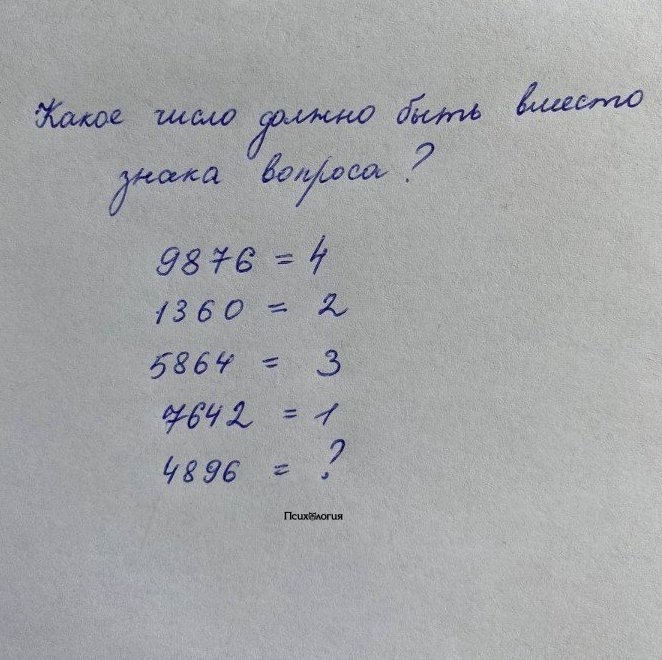 Какое число должно быть вместо
знака вопроса?
9876 = 4
1360 = 2
5864 = 3
7642 = 1
4896 = ?
Психология